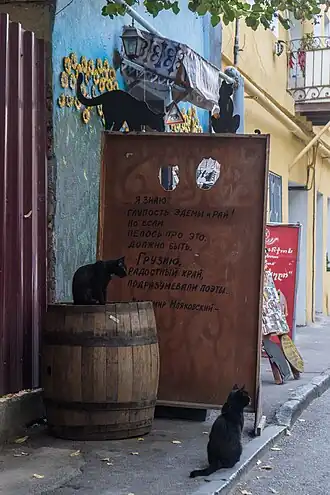 Я ЗНАЮ:
ГЛУПОСТЬ ЭДЕМЫ И РАЙ!
НО ЕСЛИ
ПЕЛОСЬ ПРО ЭТО,
ДОЛЖНО БЫТЬ,
ГРУЗИЮ,
РАДОСТНЫЙ КРАЙ,
ПОДРАЗУМЕВАЛИ ПОЭТЫ.
МАЯКОВСКИЙ-